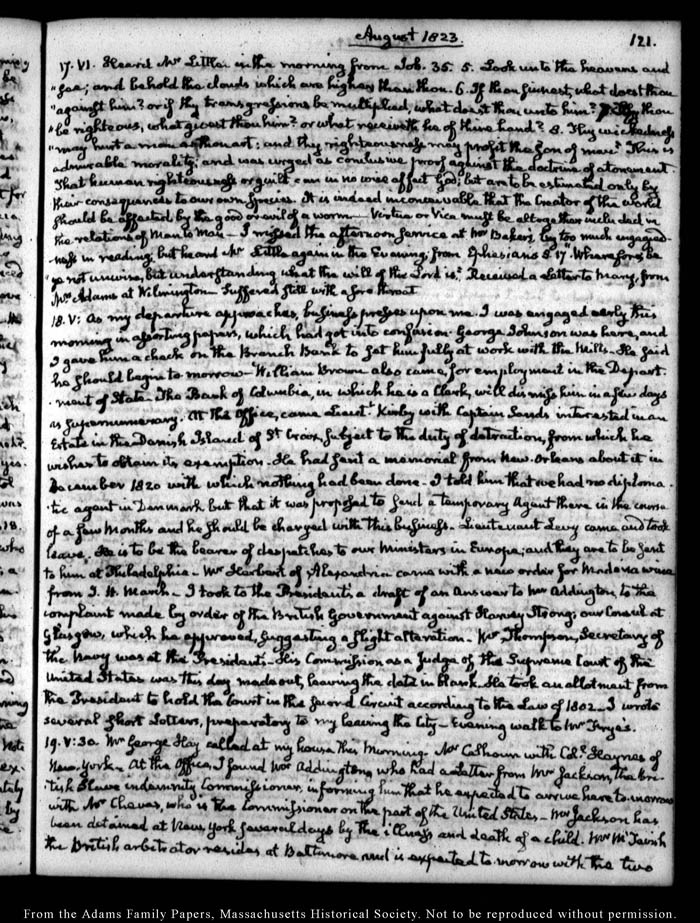 August 1823.
121.
17. VI. Heard Mr Little in the morning from Job. 35. 5. Look unto the heavens and
"see; and behold the clouds which are higher than thou. 6. If thou sinnest, what doest thou
"against him? or if thy transgressions be multiplied, what doest thou unto him? 7. If thou
"be righteous, what givest thou him? or what receiveth he of thine hand? 8. Thy wickedness
"may hurt a man as thou art; and thy righteousness may profit the son of man." This is
admirable morality; and was urged as conclusive proof against the doctrine of atonement.
That human righteousness or guilt can in no wise affect God; but are to be estimated only by
their consequences to our own species. It is indeed inconceivable that the Creator of the world
should be affected by the good or evil of a worm— Virtue or Vice must be altogether included in
the relations of Man to Man— I missed the afternoon service at Mr Baker's, by too much engaged-
-ness in reading; but heard Mr Little again in the Evening, from Ephesians 5. 17. Wherefore be
ye not unwise, but understanding what the will of the Lord is." Received a Letter to Mary, from
Mrs Adams at Wilmington— Suffered still with a sore throat
18. V: As my departure approaches, business presses upon me. I was engaged early this
morning in assorting papers, which had got into confusion. George Johnson was here, and
I gave him a check on the Branch Bank to set him fully at work with the Mills— He said
he should begin to morrow— William Brown also came, for employment in the Depart-
-ment of State— The Bank of Columbia, in which he is a Clerk, will dismiss him in a few days
as supernumerary. At the Office, came Lieutt Kirby with Captain Sands interested in an
Estate in the Danish Island of St Croix, subject to the duty of detraction, from which he
wishes to obtain its exemption. He had sent a memorial from New-Orleans about it in
December 1820 with which nothing had been done— I told him that we had no diploma-
-tic agent in Denmark but that it was proposed to send a temporary Agent there in the course
of a few Months and he should be charged with this business— Lieutenant Levy came and took
leave. He is to be the bearer of despatches to our Ministers in Europe; and they are to be sent
to him at Philadelphia— Mr Herbert of Alexandria came with a new order for Madeira wine
from J. H. March— I took to the President's, a draft of an Answer to Mr Addington, to the
complaint made by order of the British Government against Harvey Strong; our Consul at
Glasgow, which he approved, suggesting a slight alteration— Mr Thompson, Secretary of
the Navy was at the President's— His Commission as a Judge of the Supreme Court of the
United States was this day made out, leaving the date in blank. He took an allotment from
the President to hold the Court in the second Circuit according to the Law of 1802— I wrote
several short Letters, preparatory to my leaving the City— Evening walk to Mr Frye's.
19. V:30. Mr George Hay called at my house this Morning. Mr Calhoun with Coll Haynes of
New-York— At the Office, I found Mr Addington, who had a Letter from Mr Jackson, the Bri-
-tish Slave indemnity Commissioner, informing him that he expected to arrive here to-morrow
with Mr Cheves, who is the Commissioner on the part of the United States— Mr Jackson has
been detained at New York several days by the illness and death of a child. Mr McTavish
the British arbitrator resides at Baltimore and is expected to morrow with the two
From the Adams Family Papers, Massachusetts Historical Society. Not to be reproduced without permission.